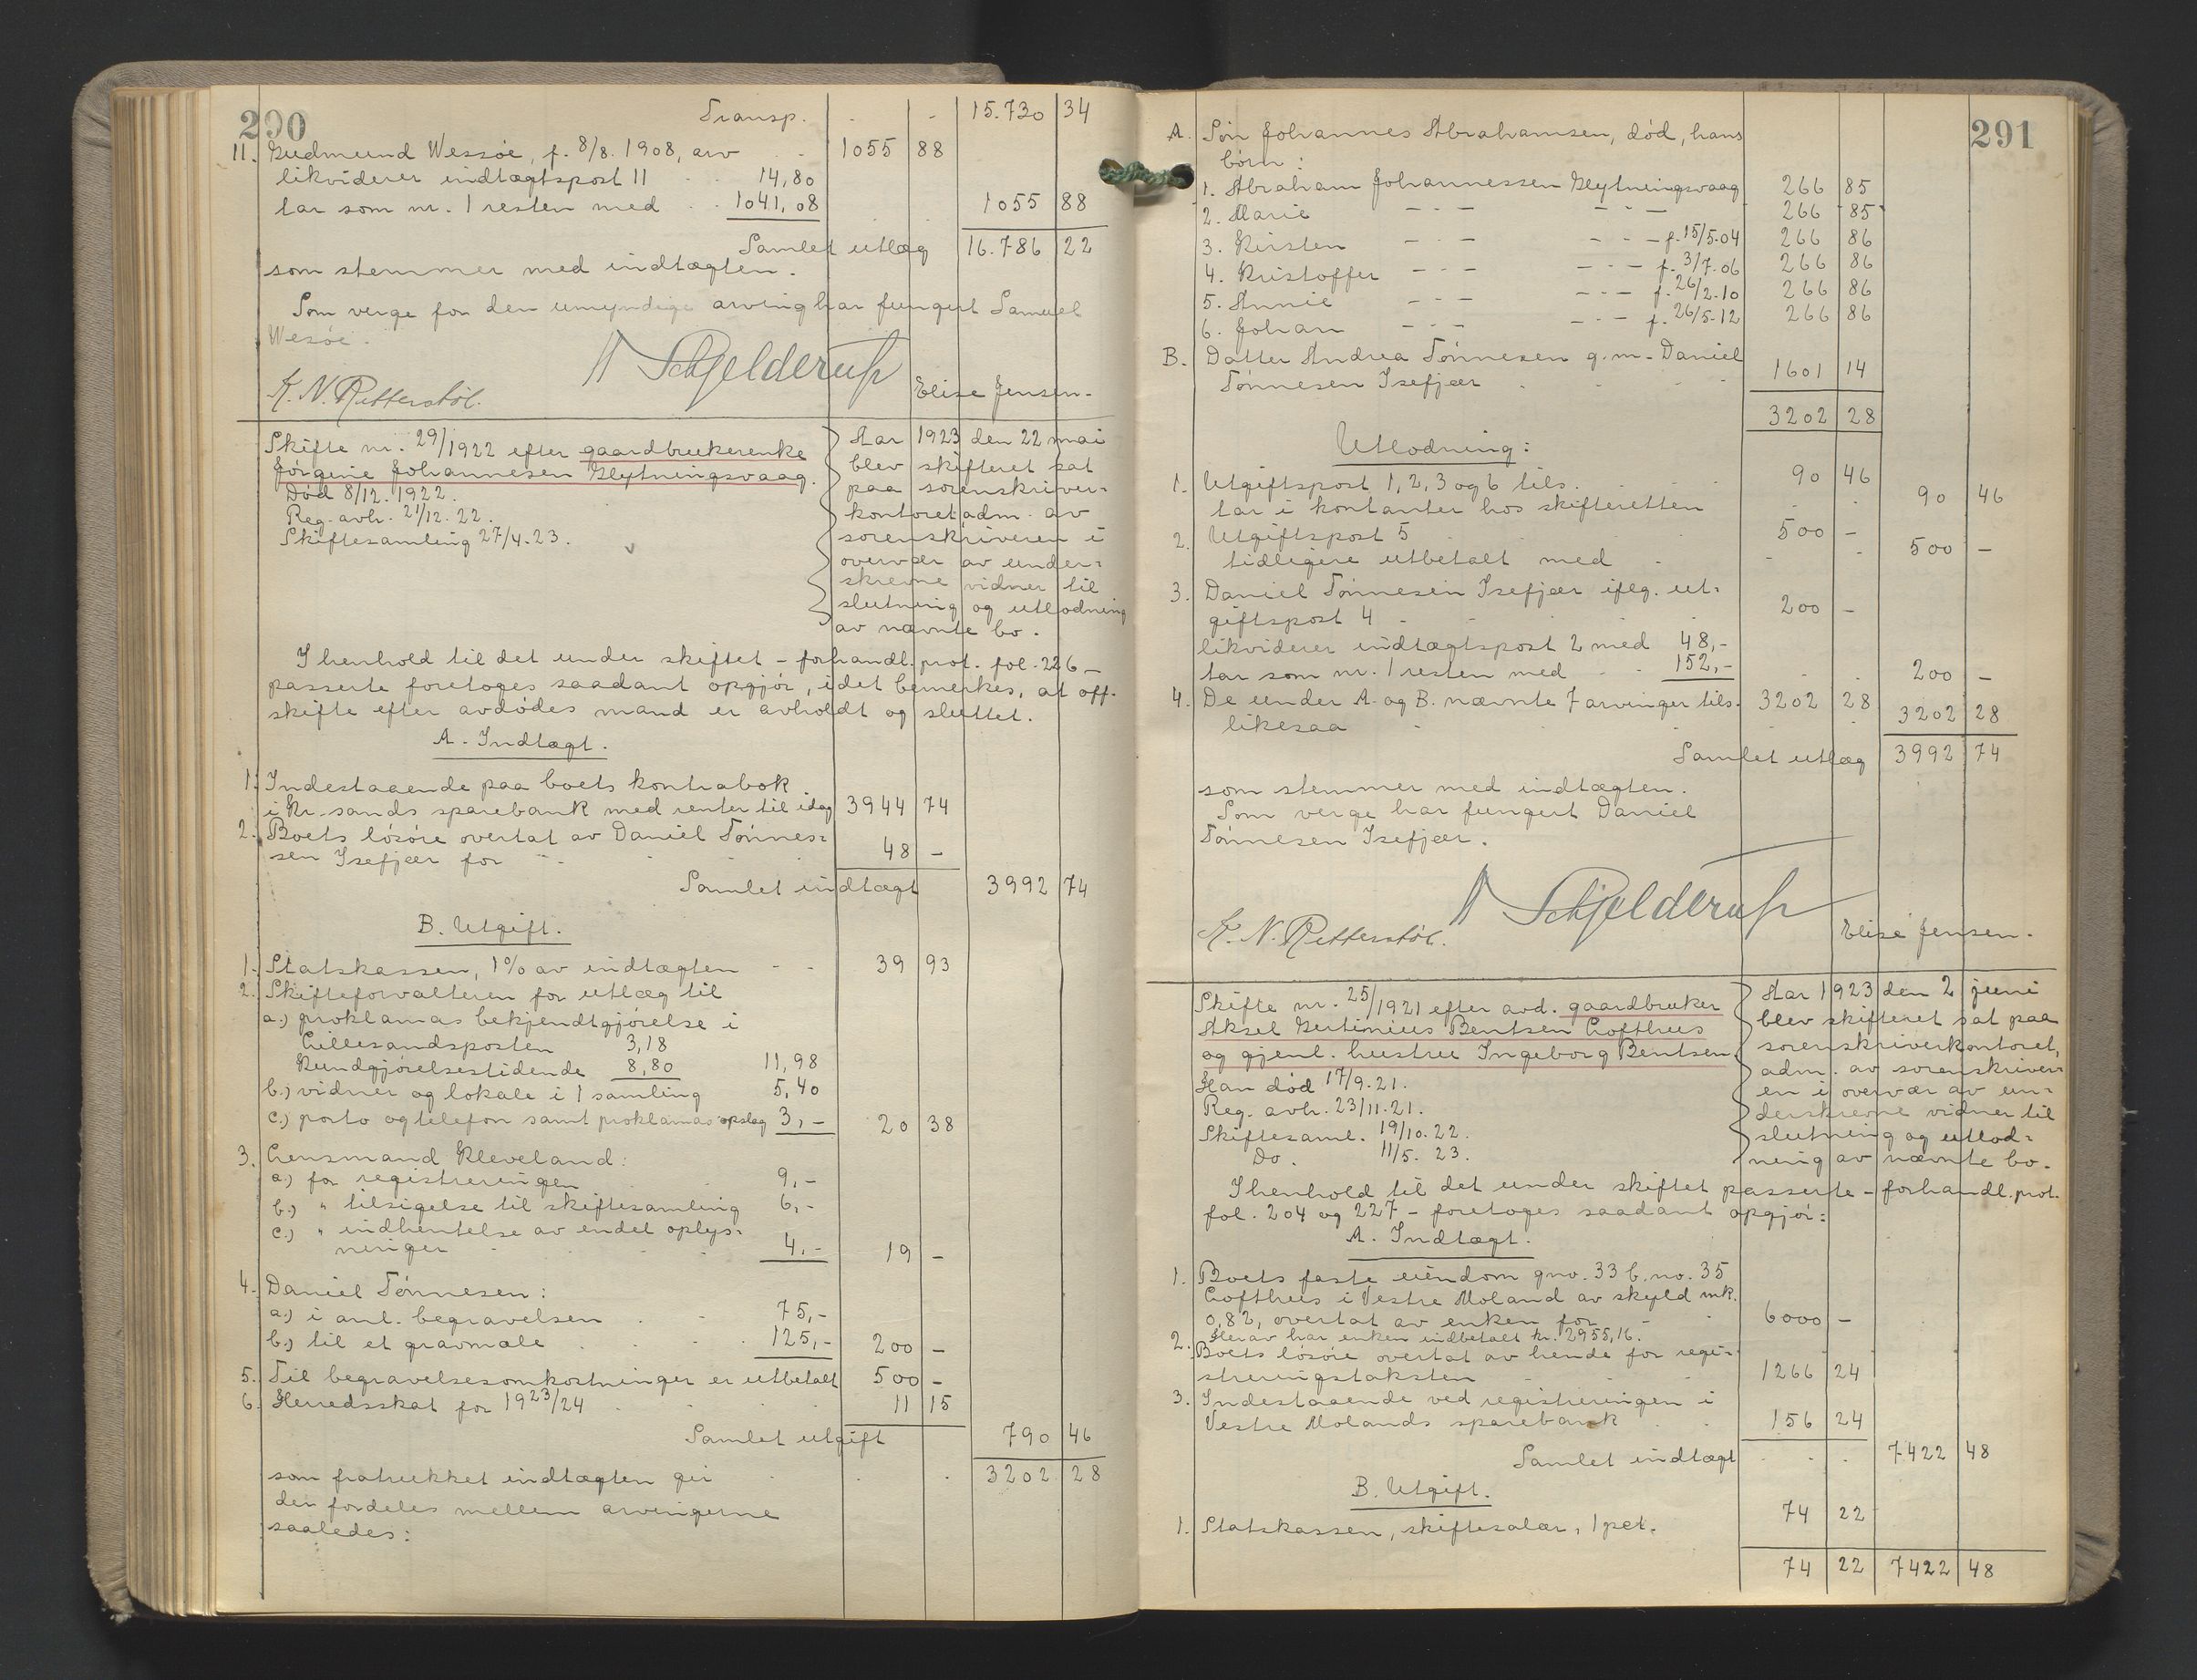 290
Transp. - - 15.730 34
11. Gudmund Wessøe, f. 8/8. 1908, arv - - 1055 88
likviderer indtægtspost 11 - - 14,80
tar som nr. 1 resten med - - 1041,08 1055 88
Samlet utlæg 16.786 22
som stemmer med indtægten.
Som verge for den umyndige arving har fungert Samuel
Wesøe.
Schjelderup
K. N. Retterstøl. Elise Jensen.
Skifte nr. 29/1922 efter gaardbrukerenke
Jørgine Johannesen Glytningsvaag.
Død 8/12. 1922.
Reg. avh. 21/12. 22.
Skiftesamling 27/4. 23.
Aar 1923 den 22 mai
blev skifteret sat
paa sorenskriver-
kontoret adm. av
sorenskriveren i
overvær av under-
skrevne vidner til
slutning og utlodning
av nævnte bo.
I henhold til det under skiftet - forhandl. prot. fol. 226 -
passerte foretoges saadant opgjør, idet bemerkes, at off.
skifte efter avdødes mand er avholdt og sluttet.
A. Indtægt.
1. Indestaaende paa boets kontrabok
i Kr.sands sparebank med renter til idag 3944 74
2. Boets løsøre overtat av Daniel Tønnes-
sen Isefjær for - - 48 -
Samlet indtægt 3992 74
B. Utgift.
1. Statskassen, 1% av indtægten - - 39 93
2. Skifteforvalteren for utlæg til
a.) proklamas bekjendtgjørelse i
Lillesandsposten 3,18
Kundgjørelsestidende 8,80 11,98
b.) vidner og lokale i 1 samling 5,40
c.) porto og telefon samt proklamas opslag 3,- 20 38
3. Lensmand Kleveland:
a.) for registreringen 9,-
b.) " tilsigelse til skiftesamling 6,-
c.) " indhentelse av endel oplys-
ninger 4,- 19 -
4. Daniel Tønnesen:
a.) i anl. begravelsen 75,-
b.) til et gravmæle 125,- 200 -
5. Til begravelsesomkostninger er utbetalt 500 -
6. Herredsskat for 1923/24 11 15
Samlet utgift 790 46
som fratrukket indtægten gir 3202 28
der fordeles mellem arvingerne
saaledes:
291
A. Søn Johannes Abrahamsen, død, hans
børn:
1. Abraham Johannessen Glytningsvaag 266 85
2. Marie - - - - - - 266 85
3. Kirsten - - - - - - f. 15/5.04 266 86
4. Kristoffer - - - - - - f. 3/7.06 266 86
5. Annie - - - - - - f. 26/2.10 266 86
6. Johan - - - - - - f. 26/5.12 266 86
B. Datter Andrea Tønnesen g.m. Daniel
Tønnesen Isefjær 1601 14
3202 28
Utlodning:
1. Utgiftspost 1, 2, 3 og 6 tils. 90 46
tar i kontanter hos skifteretten 90 46
2. Utgiftspost 5 500 -
tidligere utbetalt med 500 -
3. Daniel Tønnesen Isefjær iflg. ut-
giftspost 4 200 -
likviderer indtægtspost 2 med 48,-
tar som nr. 1 resten med 152,- 200 -
4. De under A. og B. nævnte 7 arvinger tils. 3202 28
likesaa 3202 28
Samlet utlæg 3992 74
som stemmer med indtægten.
Som verge har fungert Daniel
Tønnesen Isefjær.
Schjelderup
K. N. Retterstøl. Elise Jensen.
Skifte nr. 25/1921 efter avd. gaardbruker
Aksel Gertinius Bentsen Lofthus
og gjenl. hustru Ingeborg Bentsen.
Han død 17/9. 21.
Reg. avh. 23/11. 21.
Skiftesaml. 19/10. 22.
Do. 11/5. 23.
Aar 1923 den 2 juni
blev skifteret sat paa
sorenskriverkontoret,
adm. av sorenskriver-
en i overvær av un-
derskrevne vidner til
slutning og utlod-
ning av nævnte bo.
I henhold til det under skiftet passerte - forhandl. prot.
fol. 204 og 227 - foretoges saadant opgjør:
A. Indtægt.
1. Boets faste eiendom gno. 33 b.no. 35
Lofthus i Vestre Moland av skyld mk.
0,82, overtat av enken for - - 6000 -
Herav har enken indbetalt kr. 2955,16.
2. Boets løsøre overtat av hende for regi-
streringstaksten 1266 24
3. Indestaaende ved registreringen i
Vestre Molands sparebank 156 24
Samlet indtægt 7422 48
B. Utgift.
1. Statskassen, skiftesalær, 1 pct. 74 22
74 22 7422 48